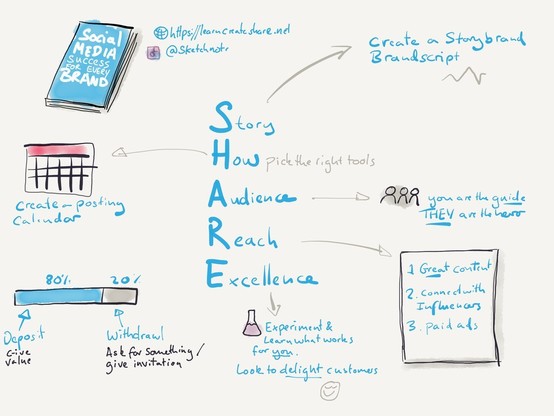 Social
MEDIA
SUCCESS
FOR EVERY
BRAND
https://learncreateshare.net
@Sketchnotr
Create a Storybrand
Brandscript
Story
How pick the right tools
Audience
Reach
Excellence
Create a posting
Calindar
you are the guide
THEY are the hero
1 Great content
2. connect with
Influencers
3. paid ads
80% 20%
Deposit
Give
value
Withdrawl
Ask for something /
give invitation
Experiment &
Learn what works
for you.
Look to delight customers